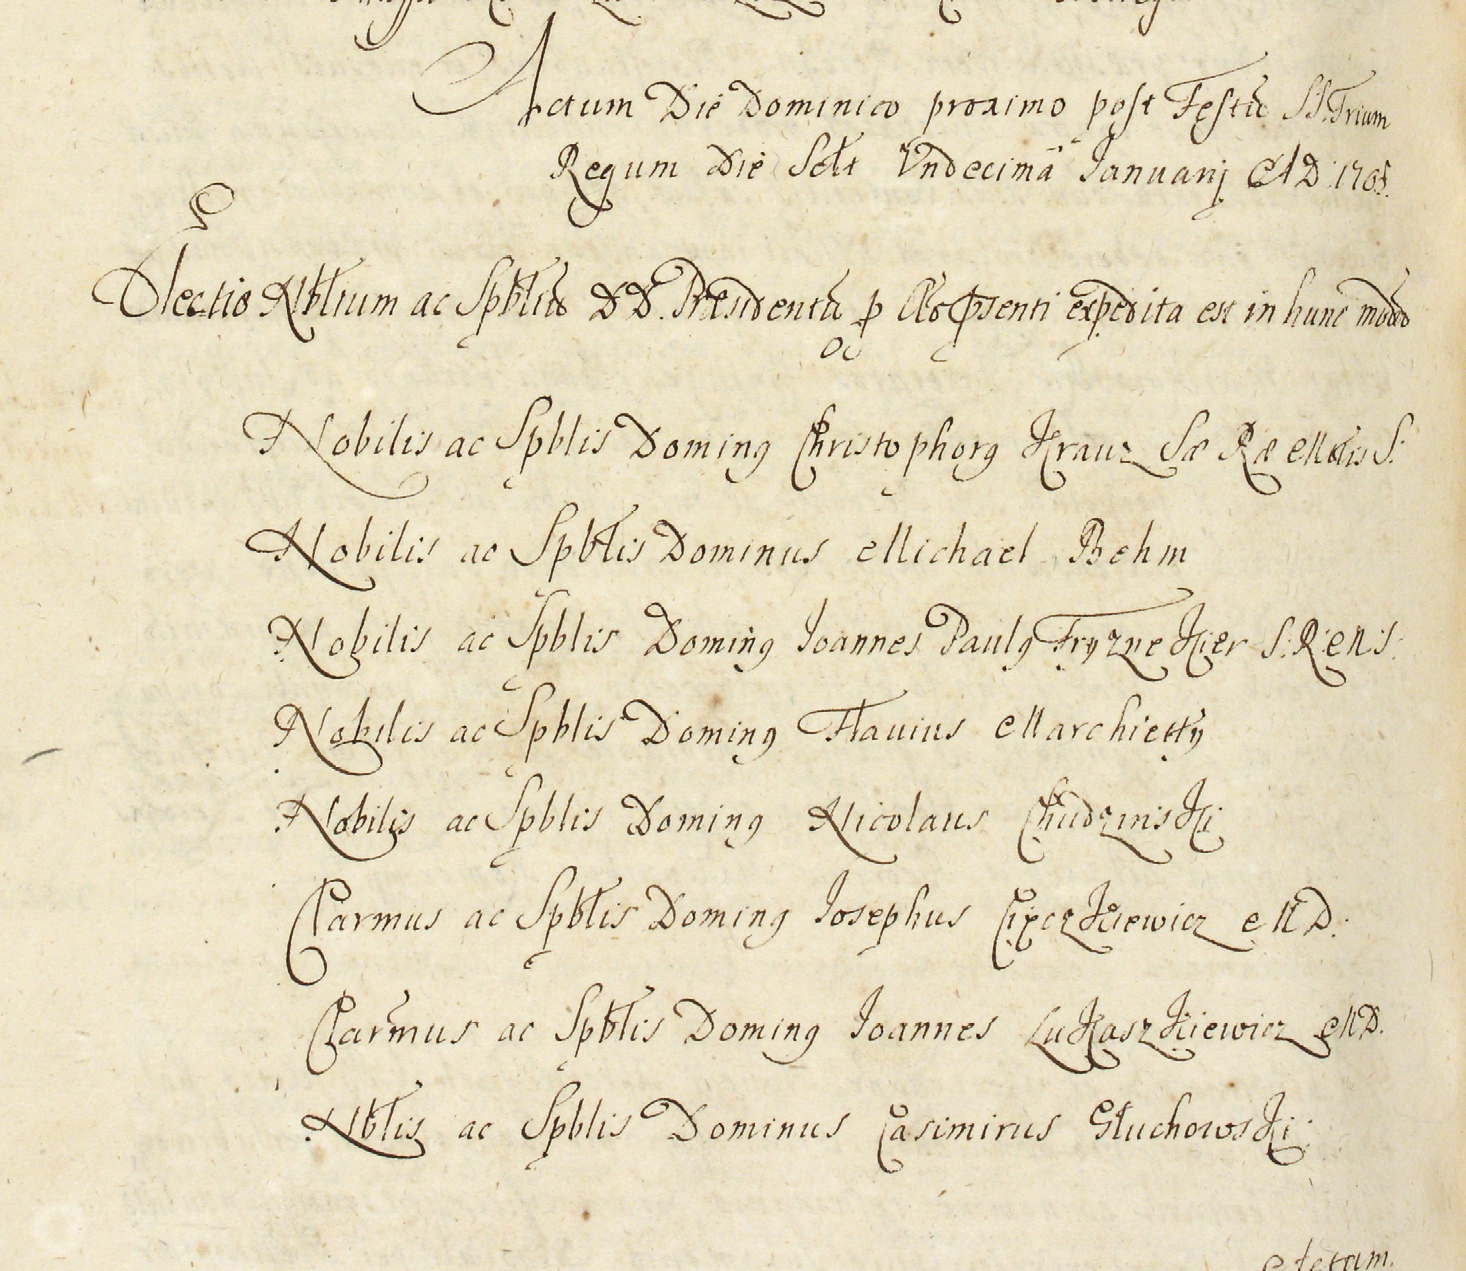 Actum Die Dominico proximo post Festū SS. Trium
Regum Die Sclt Vndecimā Januarij A D 1705.
Electio Nbłium ac Spbłiū DD. Præsidentū p Aō psenti expedita est in hunc modū
Nobilis ac Spblis Doming Christophorg Krauz Sæ Ræ Mttis S.
Nobilis ac Spbłis Dominus Michael Behm
Nobilis ac Spblis Doming Joannes Paulg Fryznekier S. R. M. S.
Nobilis ac Spblis Doming Flauius Marchietty
Nobilis ac Spblis Doming Nicolaus Chudzinski
Clarmus ac Spbłis Doming Josephus Cyxczkiewicz M D.
Clarmus ac Spbłis Doming Joannes Lukaszkiewicz M D.
Nbłis ac Spblis Dominus Casimirus Głuchowski